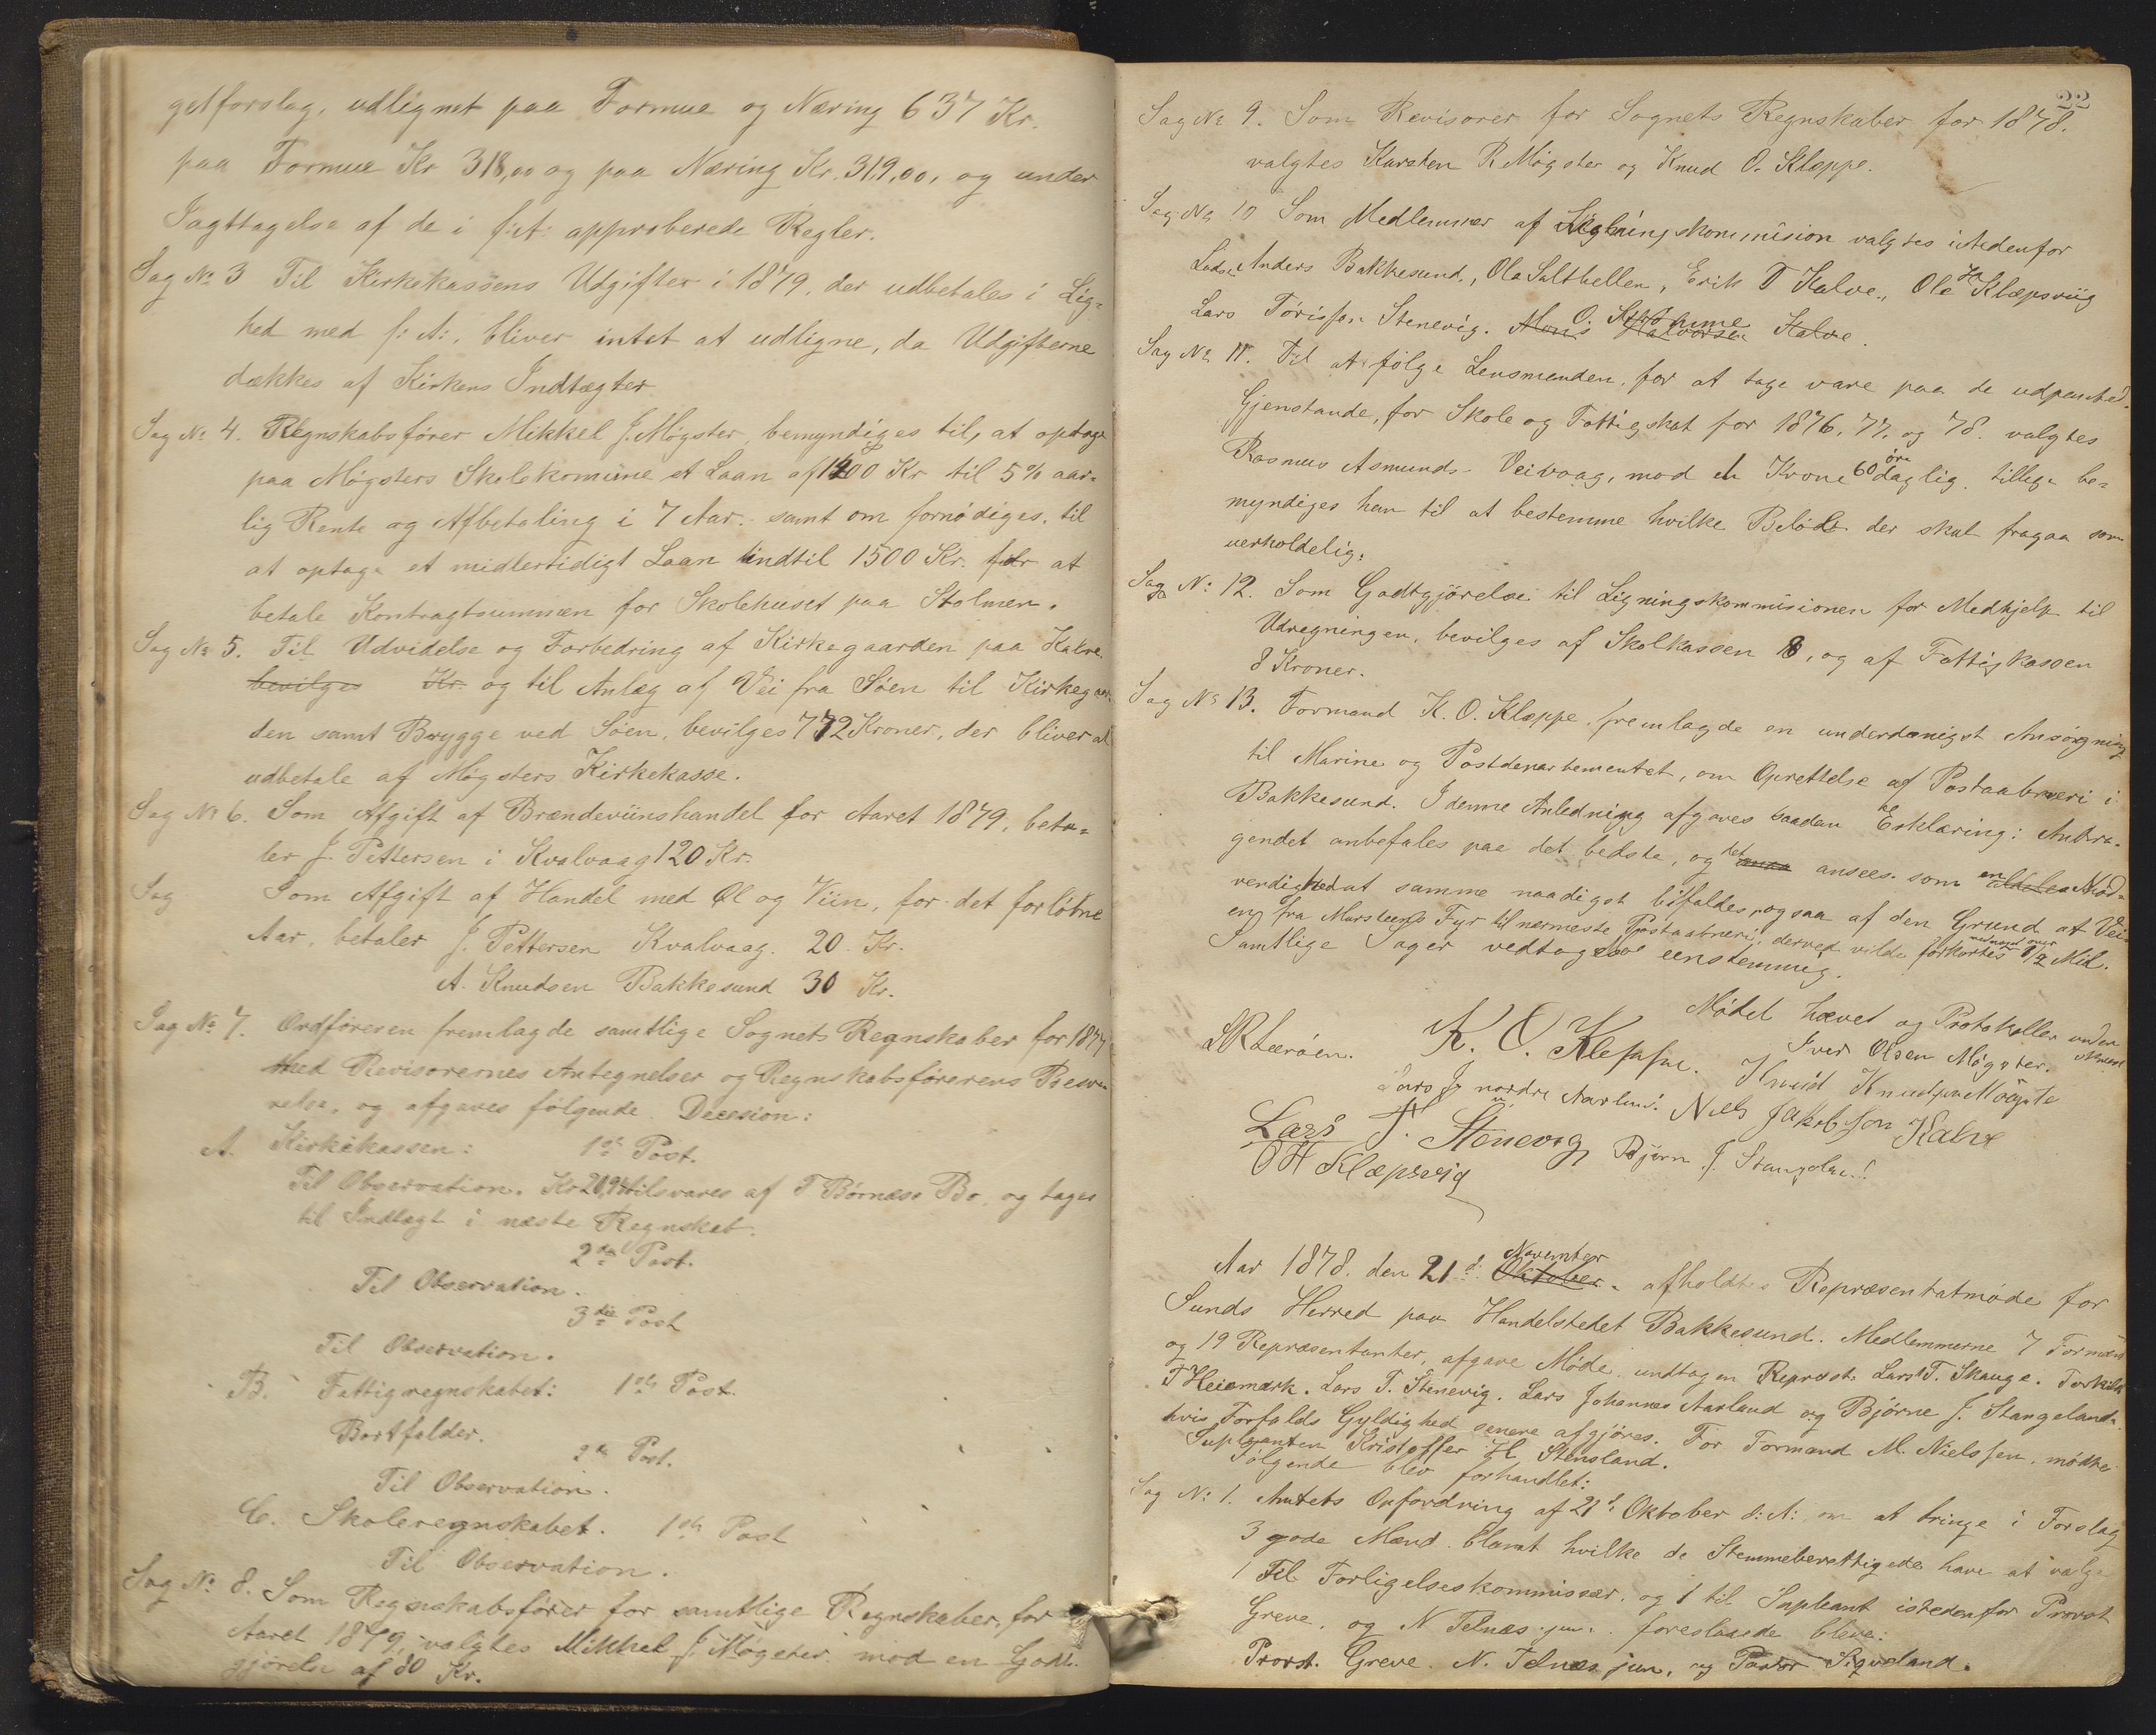 getforslag, udlignet paa Formue og Næring 637 Kr.
paa Formue Kr 318,00 og paa Næring Kr. 319,00, og under
Iagttagelse af de i f: A: approberede Regler.
Sag No 3 Til Kirkekassens Udgifter i 1879, der udbetales i Lig=
hed med f: A:, bliver intet at udligne, da Udgifterne
dækkes af Kirkens Indtægter
Sag No 4. Regnskabsfører Mikkel J. Møgster, bemyndiges til, at optage
paa Møgsters Skolekomüne et Laan af 1400 Kr til 5% aar=
lig Rente og Afbetaling i 7 Aar. samt om fornødiges, til
at optage et midlertidigt Laan indtil 1500 Kr. for at
betale Kontragtsummen for Skolehuset paa Stolmen.
Sag No 5. Til Udvidelse og Forbedring af Kirkegaarden paa Kalve
bevilges Kr. og til Anlæg af Vei fra Søen til Kirkegaar=
den samt Brygge ved Søen, bevilges 772 Kroner, der bliver at
udbetale af Møgsters Kirkekasse.
Sag No 6. Som Afgift af Brændeviinshandel for Aaret 1879, beta=
ler J. Pettersen i Kvalvaag 120 Kr.
Sag Som Afgift af Handel med Øl og Viin, for det forløbne
Aar, betaler J. Pettersen Kvalvaag. 20 Kr.
A. Knudsen Bakkesund 30 Kr.
Sag No 7. Ordføreren fremlagde samtlige Sognets Regnskaber for 1877
med Revisorernes Antegnelser og Regnskabsførerens Besva=
relse, og afgaves følgende Decesion:
A. Kirkekassen: 1ste Post.
Til Observation. Kr 20,94 tilsvares af T Børnæs Bo, og tages
til Indtægt i næste Regnskab.
2den Post.
Til Observation.
3die Post
Til Observation.
B. Fattigregnskabet: 1ste Post.
Bortfalder.
2den Post.
Til Observation.
C. Skoleregnskabet. 1ste Post
Til Observation.
Sag No 8. Som Regnskabsfører for samtlige Regnskaber, for
Aaret 1879, valgtes Mikkel J. Møgster mod en Godt=
gjørelse af 80 Kr.
22
Sag No 9. Som Revisorer for Sognets Regnskaber for 1878.
valgtes Karsten R. Møgster og Knud O. Klæppe.
Sag No 10 Som Medlemmer af Ligningskommision valgtes istedenfor
Anders Bakkesund, Ola Salthellen, Erik T Kalve, Ole H Klæpsviig
Lars Torissen Stenevig. Mons Halvorsen O. Stromme Kalve.
Sag No 11. Til at følge Lensmanden, for at tage vare paa de udpantede
Gjenstande, for Skole og Fattigskat for 1876, 77, og 78. valgtes
Rasmus Asmunds. Veivaag, mod en Krone 60 øre daglig, tillige be=
myndiges han til at bestemme hvilke Beløb der skal fragaa som
uerholdelig.
Sag No: 12. Som Godtgjørelse til Ligningskommisionen for Medhjelp til
Udregningen, bevilges af Skolkassen 8, og af Fattigkassen
8 Kroner.
Sag No 13. Formand K. O. Kleppe, fremlagde en underdanigst Ansøgning
til Marine og Postdepartementet, om Oprettelse af Postaabneri i
Bakkesund. I denne Anledning afgaves saadan Erklæring: Andra=
gendet anbefales paa det bedste, og det ansees som en aldeles Nød=
vendighed at samme naadigst bifaldes, ogsaa af den Grund at Vei=
en fra Marsteens Fyr til nærmeste Postaabneri, derved vilde forkortes med noget over 1/2 Mil.
Samtlige Sager vedtoges eenstemmig.
Mødet hævet og Protokollen under
skrevet
L R Lerøen. K. O. Kleppe. Iver Olsen Møgster.
Knud Knudsen Møgste
Lars J. nordre Aarland. Niels Jakobson Kalve
Lars T. Stenevig Bjørn J. Stangeland
O H Klæpsvig
Aar 1878. den 21d. Oktober November afholdtes Repræsentatmøde for
Sunds Herred paa Handelstedet Bakkesund. Medlemmerne 7 Formænd
og 19 Repræsentanter, afgave Møde, undtagen Repræst. Lars T. Skauge. Torkild
T Heiemark. Lars T. Stenevig. Lars Johannes Aarland og Bjørne J. Stangeland.
hvis Forfalds Gyldighed senere afgjøres. For Formand M. Nielssen, mødte
Supleanten Kristoffer H. Stensland.
Følgende blev forhandlet:
Sag No: 1. Amtets Opfordring af 21d: Oktober d: A:, om at bringe i Forslag
3 gode Mænd, blant hvilke de Stemmeberettigede have at vælge
1 til Forligelseskommissær, og 1 til Supleant istedenfor Provst
Greve, og N Telnæs jun. foreslaaede bleve:
Provst. Greve. N. Telnæs jun, og Pastor Sigveland.